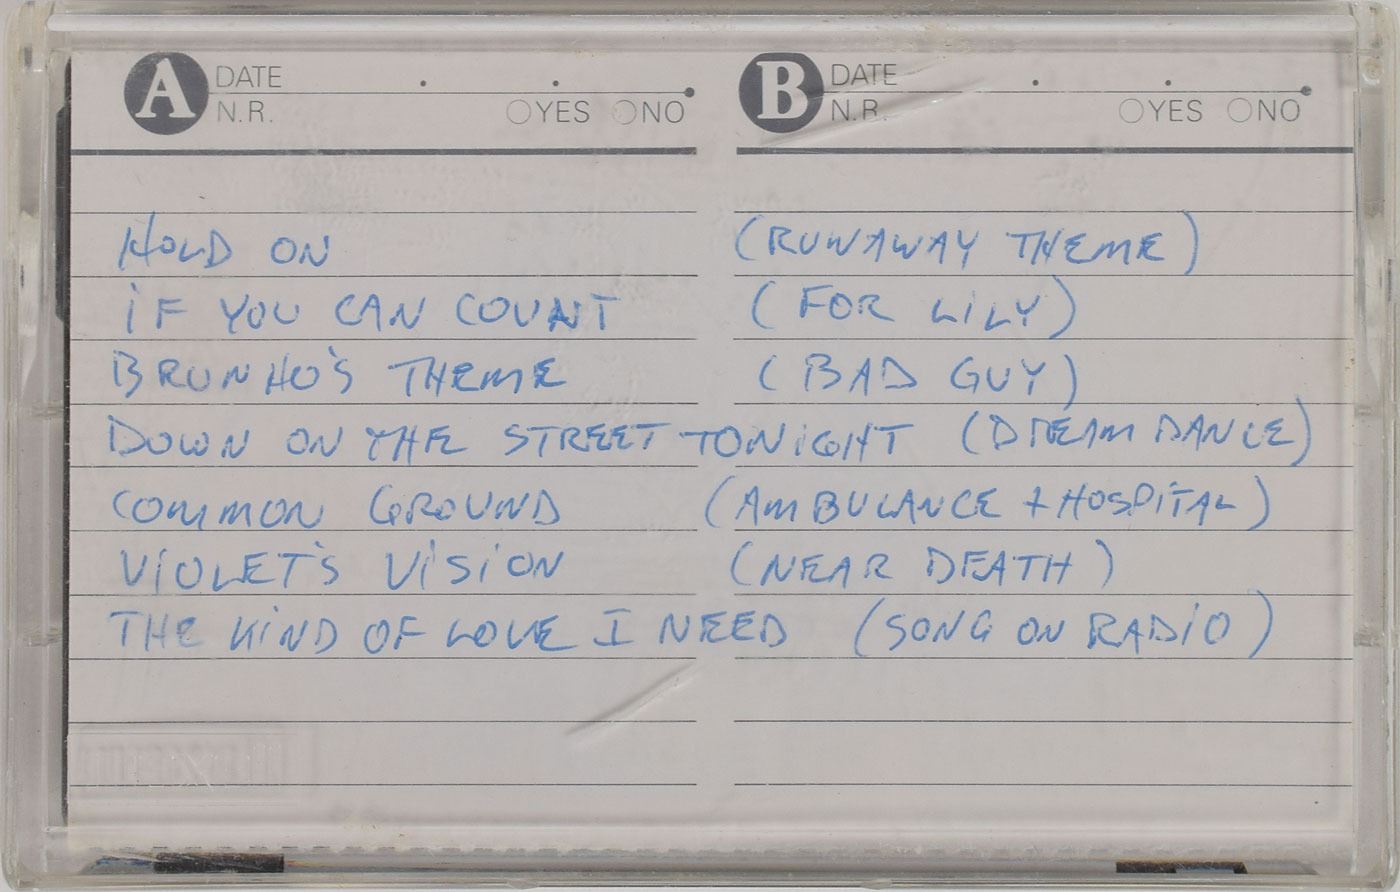 A DATE B DATE
N.R. YES NO N.R. YES NO
HOLD ON (RUNAWAY THEME)
iF YOU CAN COUNT (FOR LiLY)
BRUNHO'S THEME (BAD GUY)
DOWN ON THE STREET TONiGHT (DREAM DANCE)
COMMON GROUND (AMBULANCE + HOSPiTAL)
ViOLET'S ViSiON (NEAR DEATH)
THE KiND OF LOVE I NEED (SONG ON RADiO)